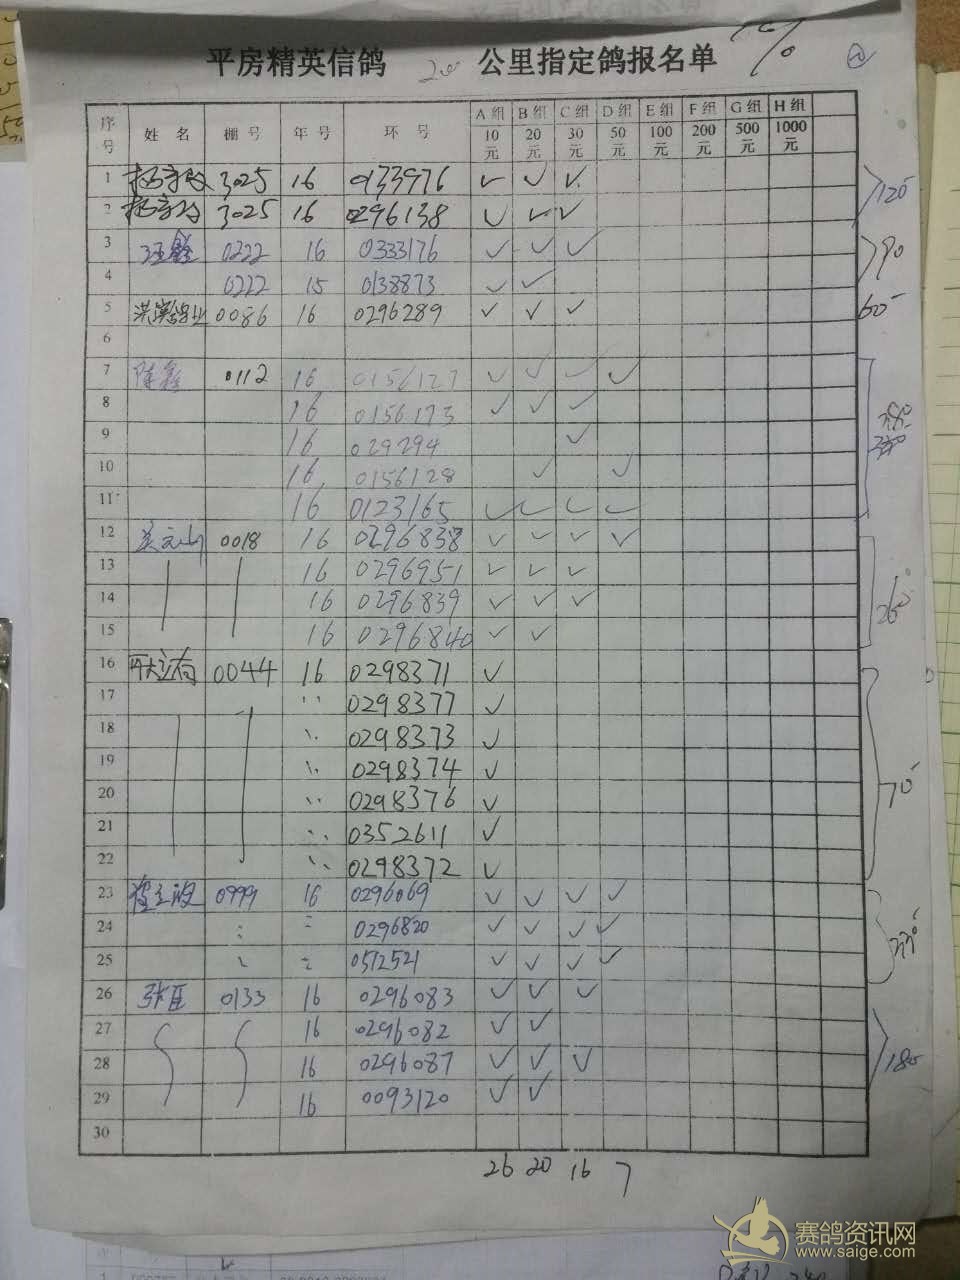 平房精英信鸽 200 公里指定鸽报名单
序号 姓名 棚号 年号 环号 A组10元 B组20元 C组30元 D组50元 E组100元 F组200元 G组500元 H组1000元
1 3025 16 0133976 ✓ ✓ ✓
2 3025 16 0296138 ✓ ✓ ✓ 120
3 汪鑫 0222 16 0333176 ✓ ✓ ✓
4 0222 15 0138873 ✓ ✓ 90
5 0086 16 0296289 ✓ ✓ ✓ 60
6
7 陈鑫 0112 16 0156127 ✓ ✓ ✓ ✓
8 16 0156173 ✓ ✓ ✓
9 16 029294 ✓
10 16 0156128 ✓ ✓
11 16 0123165 ✓ ✓ ✓ ✓
12 0018 16 0296838 ✓ ✓ ✓ ✓
13 16 0296951 ✓ ✓ ✓
14 16 0296839 ✓ ✓ ✓ 260
15 16 0296840 ✓ ✓
16 0044 16 0298371 ✓
17 0298377 ✓
18 0298373 ✓
19 0298374 ✓
20 0298376 ✓ 70
21 0352611 ✓
22 0298372 ✓
23 0999 16 0296069 ✓ ✓ ✓ ✓
24 0296820 ✓ ✓ ✓ ✓
25 0512521 ✓ ✓ ✓ ✓
26 张臣 0133 16 0296083 ✓ ✓ ✓
27 16 0296082 ✓ ✓
28 16 0296087 ✓ ✓ ✓ 180
29 16 0093120 ✓ ✓
30
26 20 16 7
赛鸽资讯网
www.saige.com